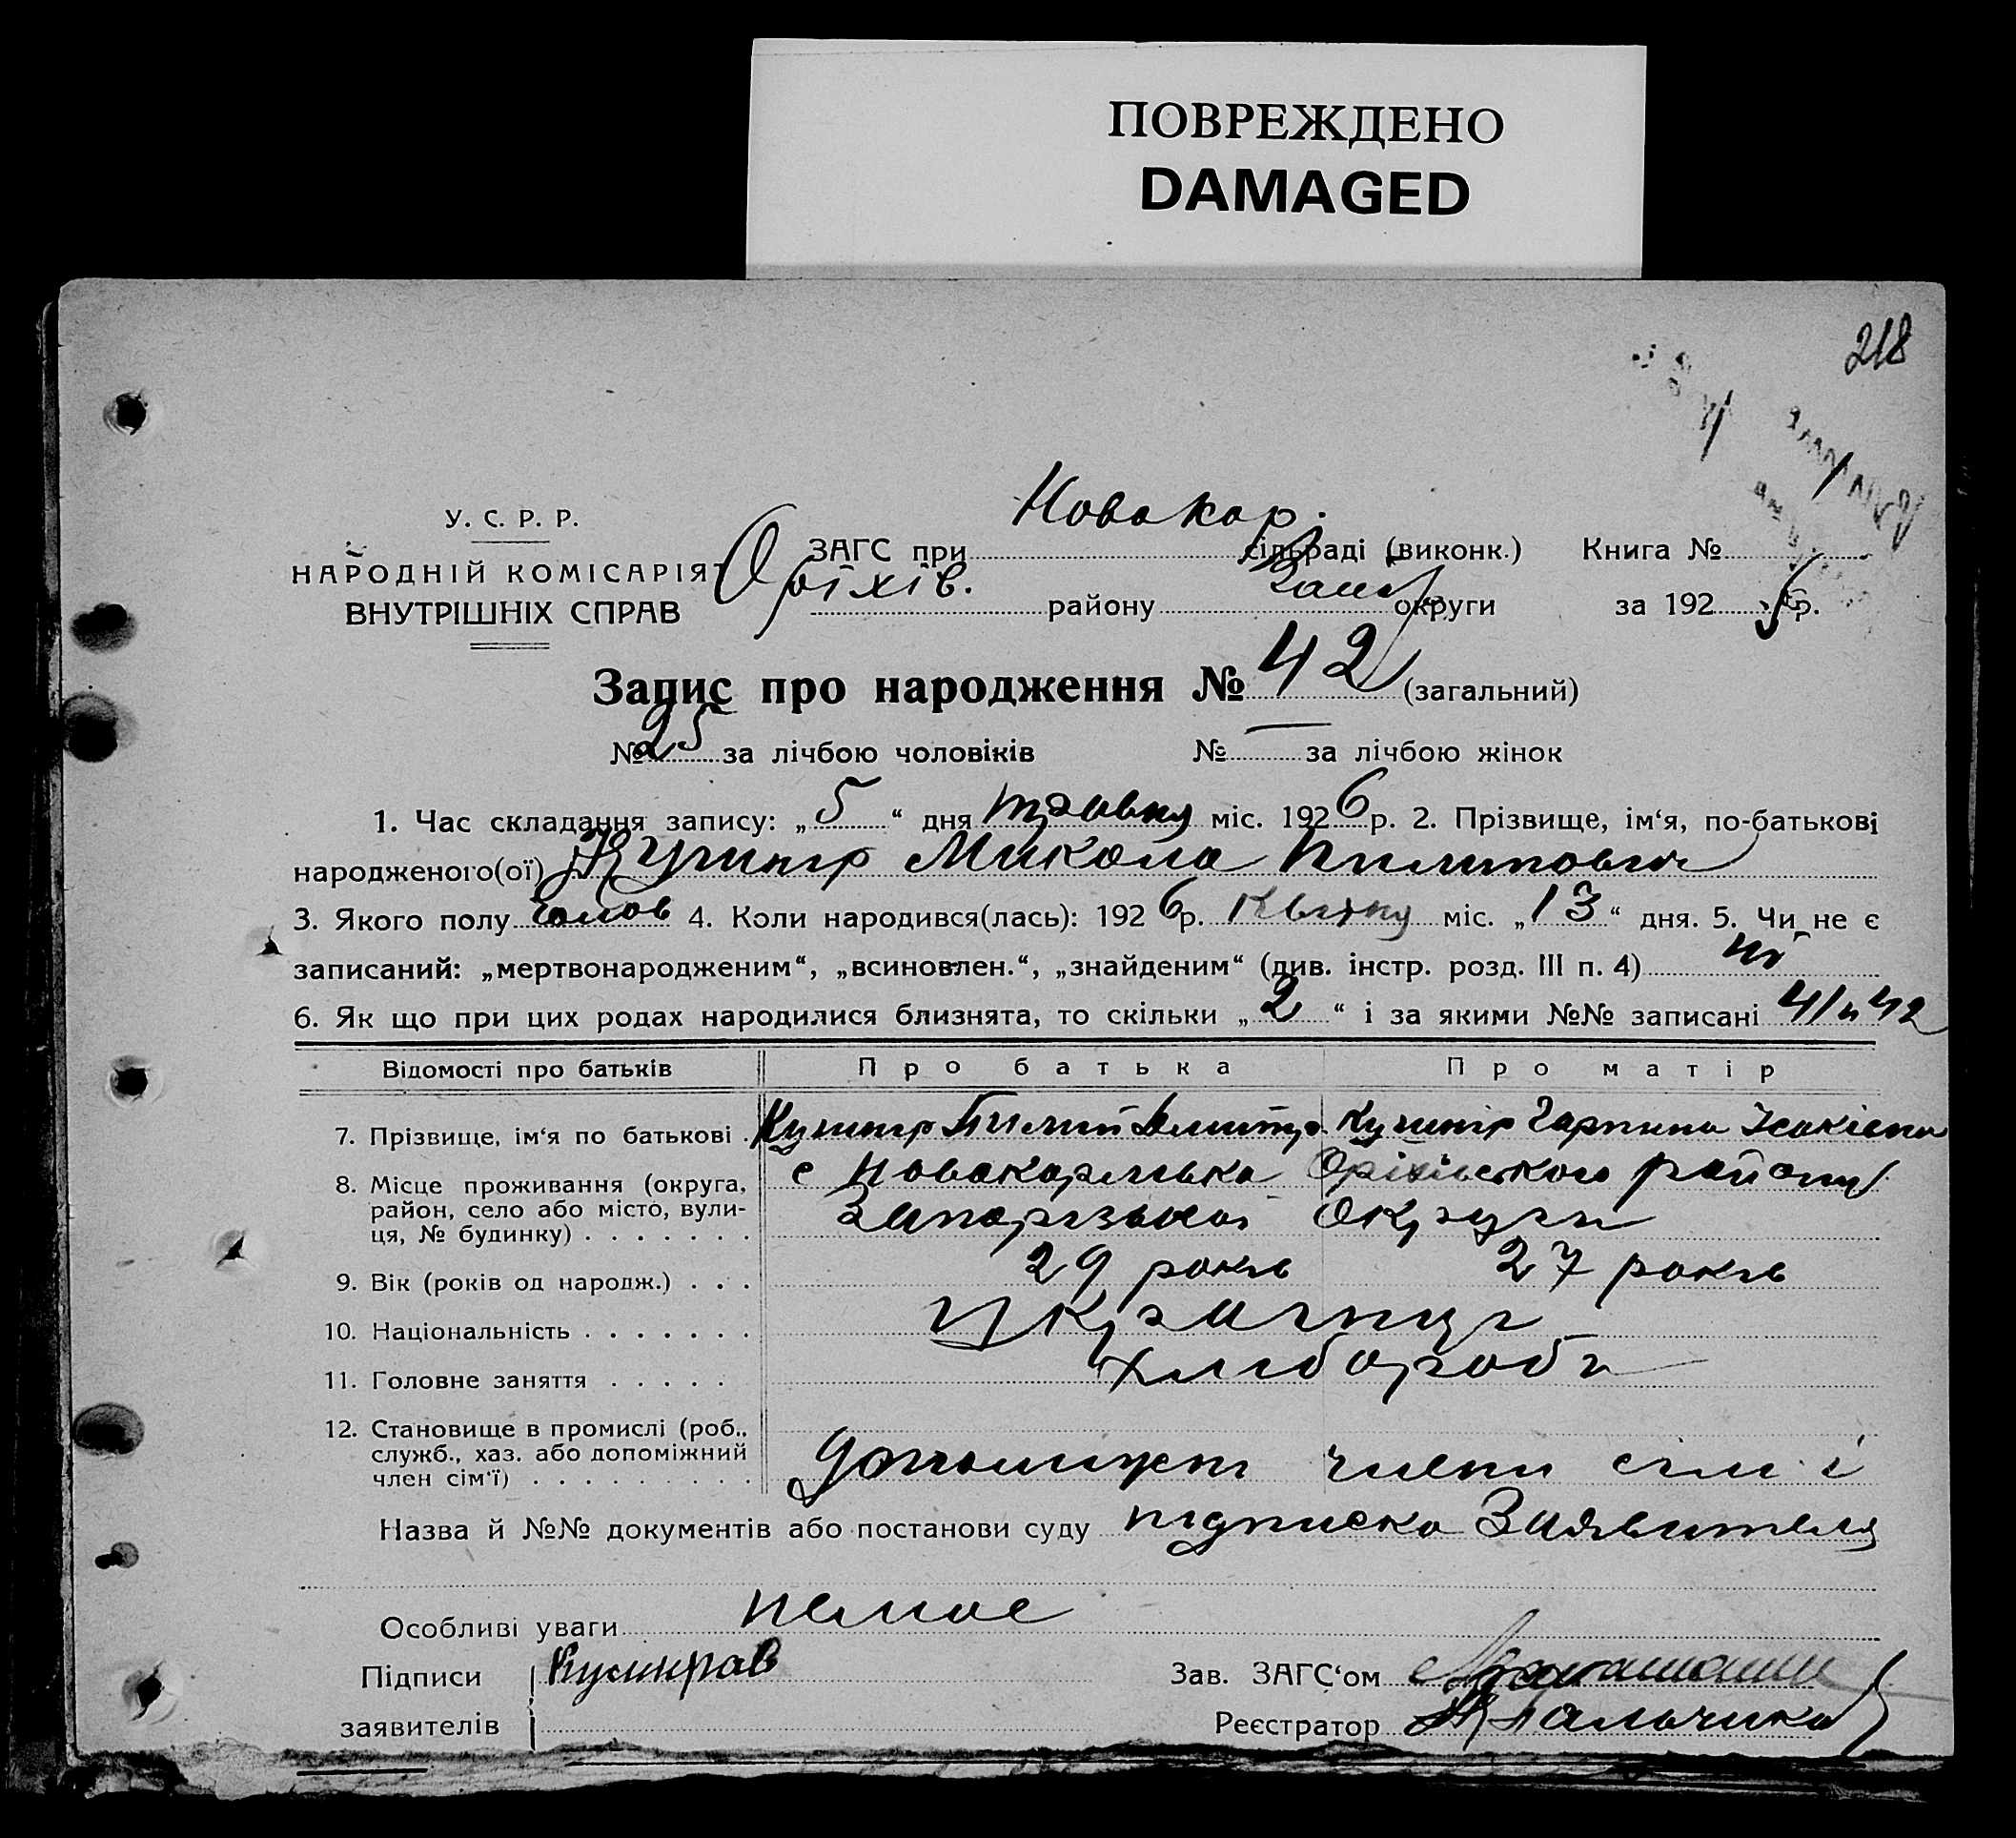 ПОВРЕЖДЕНО
DAMAGED
218
У. С. Р. Р.
НАРОДНІЙ КОМІСАРІЯТ
ВНУТРІШНІХ СПРАВ
ЗАГС при Новокар. сільраді (виконк.) Книга №
Оріхів. району Запор округи за 1926 р.
Запис про народження № 42 (загальний)
№ 25 за лічбою чоловіків № — за лічбою жінок
1. Час складання запису: „5“ дня травня міс. 1926 р. 2. Прізвище, ім‘я, по-батькові
народженого(ої) Кушнір Микола Пилипович
3. Якого полу чолов 4. Коли народився(лась): 1926 р. Квітня міс. „13“ дня. 5. Чи не є
записаний: „мертвонародженим“, „всиновлен.“, „знайденим“ (див. інстр. розд. III п. 4) ні
6. Як що при цих родах народилися близнята, то скільки „2“ і за якими №№ записані 41 и 42
Відомості про батьків Про батька Про матір
7. Прізвище, ім‘я по батькові Кушнір Пилип Дмитр. Кушнір Гарпина Ісаківна
8. Місце проживання (округа, район, село або місто, вули-ця, № будинку) с Новокарлівка Оріхівського району
Запорізької Округи
9. Вік (років од народж.) 29 років 27 років
10. Національність Українці
11. Головне заняття хлібороби
12. Становище в промислі (роб., служб., хаз. або допоміжний член сім‘ї) допоміжні члени сім і
Назва й №№ документів або постанови суду підписка Заявителя
Особливі уваги немає
Підписи
заявителів
Зав. ЗАГС‘ом
Реєстратор